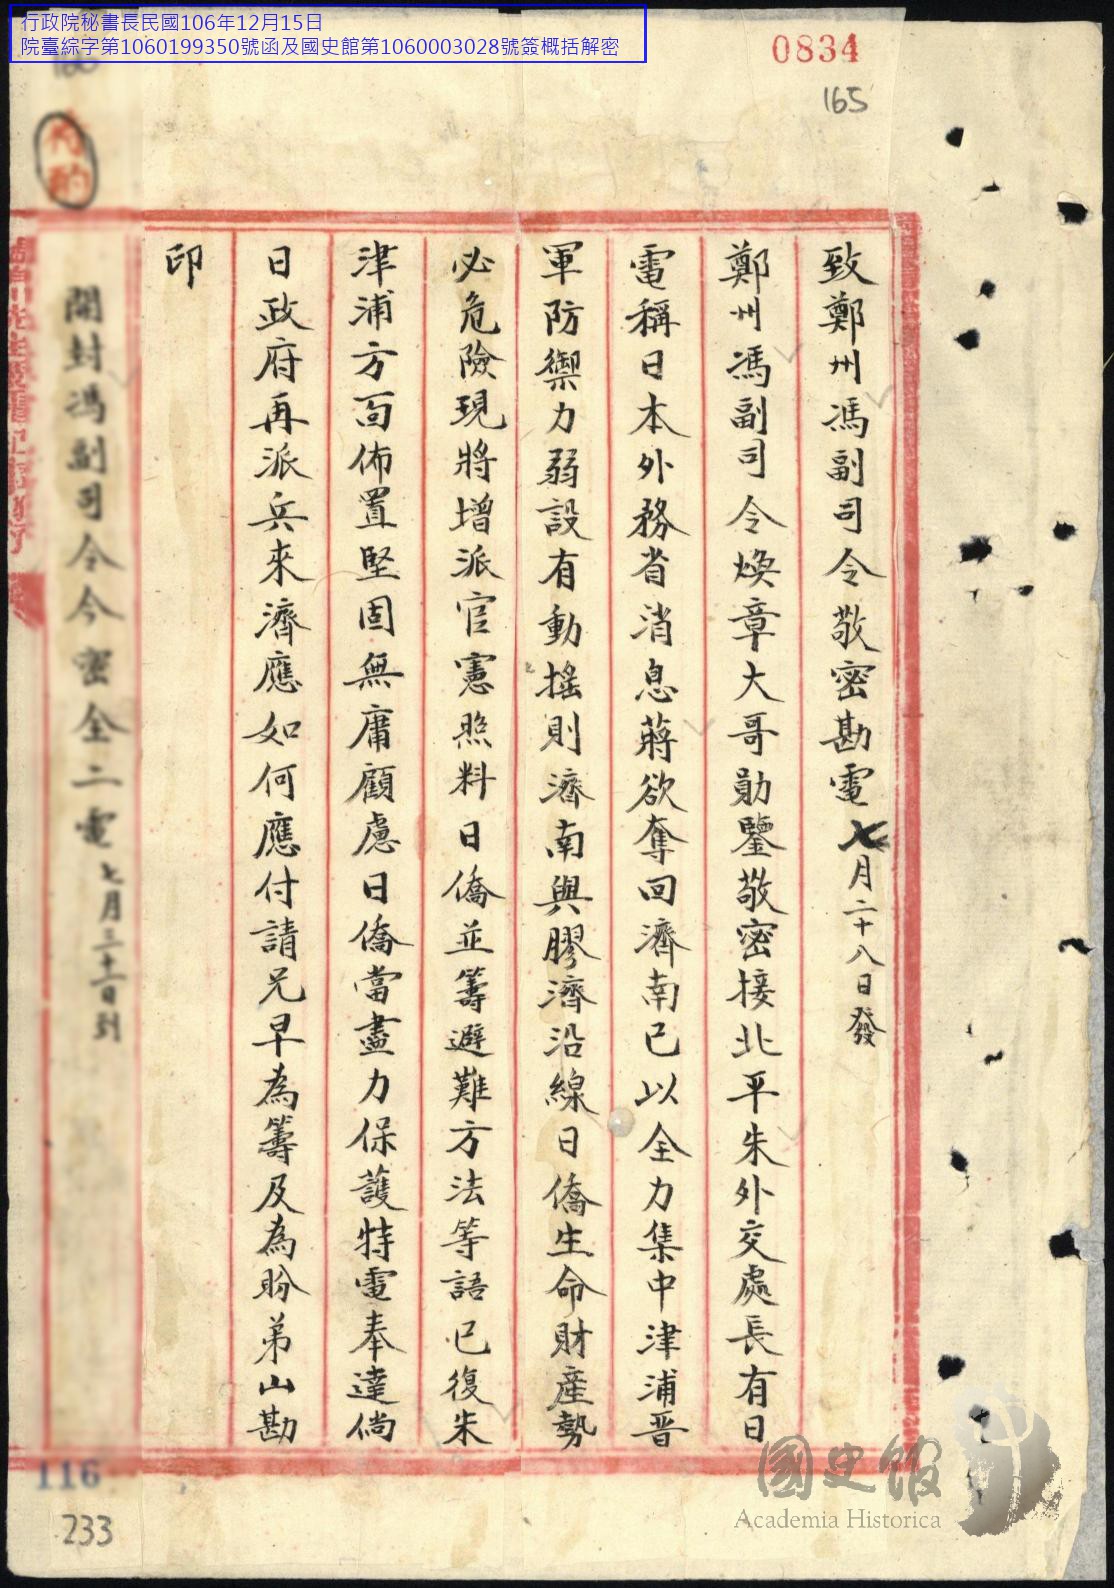 行政院秘書長民國106年12月15日
院臺綜字第1060199350號函及國史館第1060003028號簽概括解密
0834
165
致鄭州馮副司令敬密勘電七月二十八日發
鄭州馮副司令煥章大哥勛鑒敬密接北平朱外交處長有日
電稱日本外務省消息蔣欲奪回濟南已以全力集中津浦晋
軍防禦力弱設有動搖則濟南與膠濟沿線日僑生命財產勢
必危險現將增派官憲照料日僑並籌避難方法等語已復朱
津浦方面佈置堅固無庸顧慮日僑當盡力保護特電奉達倘
日政府再派兵來濟應如何應付請兄早為籌及為盼弟山勘
印
開封馮副司令今密全二電七月三十一日到
116
233
國史館
Academia Historica